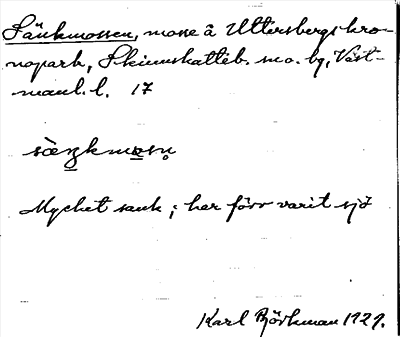 Sänkmossen, mosse å Uttersbergs kro-
nopark, Skinnskatteb. sn o. bg, Väst-
manl. l. 17
sæŋkmosn̥
Mycket sank; har förr varit sjö
Karl Björkman 1929.